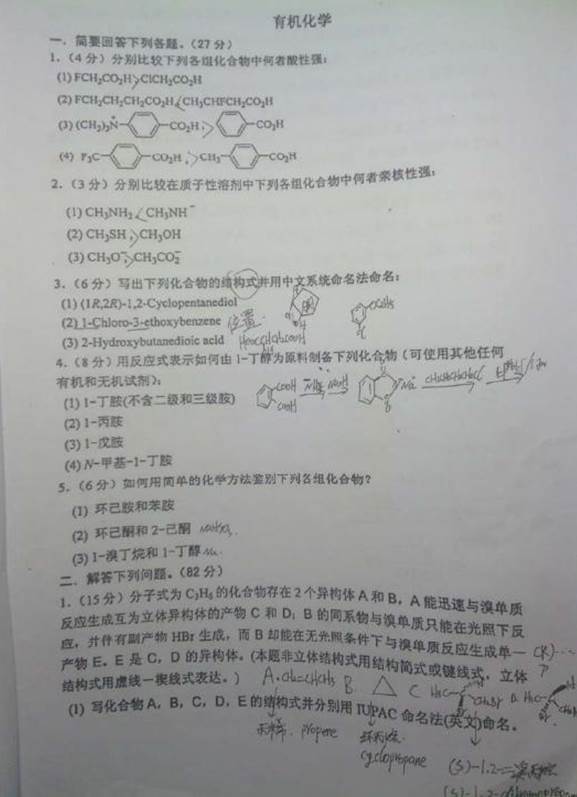 有机化学
一．简要回答下列各题。（27 分）
1.（4 分）分别比较下列各组化合物中何者酸性强：
(1) FCH₂CO₂H > ClCH₂CO₂H
(2) FCH₂CH₂CH₂CO₂H < CH₃CHFCH₂CO₂H
(3) (CH₃)₃N⁺ CO₂H > CO₂H
(4) F₃C CO₂H > CH₃ CO₂H
2.（3 分）分别比较在质子性溶剂中下列各组化合物中何者亲核性强：
(1) CH₃NH₂ < CH₃NH⁻
(2) CH₃SH > CH₃OH
(3) CH₃O⁻ > CH₃CO₂⁻
3.（6 分）写出下列化合物的结构式并用中文系统命名法命名：
(1) (1R,2R)-1,2-Cyclopentanediol
(2) 1-Chloro-3-ethoxybenzene 位置
(3) 2-Hydroxybutanedioic acid
4.（8 分）用反应式表示如何由 1-丁醇为原料制备下列化合物（可使用其他任何
有机和无机试剂）：
(1) 1-丁胺(不含二级和三级胺)
(2) 1-丙胺
(3) 1-戊胺
(4) N-甲基-1-丁胺
5.（6 分）如何用简单的化学方法鉴别下列各组化合物？
(1) 环己胺和苯胺
(2) 环己酮和 2-己酮
(3) 1-溴丁烷和 1-丁醇 Na.
二．解答下列问题。（82 分）
1.（15 分）分子式为 C₃H₆ 的化合物存在 2 个异构体 A 和 B，A 能迅速与溴单质
反应生成互为立体异构体的产物 C 和 D；B 的同系物与溴单质只能在光照下反
应，并伴有副产物 HBr 生成，而 B 却能在无光照条件下与溴单质反应生成单一 (R)-
产物 E。E 是 C，D 的异构体。（本题非立体结构式用结构简式或键线式，立体 ?
结构式用虚线—楔线式表达。） A. CH₂=CHCH₃ B. C H₃C CH₂Br D. H₃C
(1) 写化合物 A，B，C，D，E 的结构式并分别用 IUPAC 命名法(英文)命名。
丙烯. propene 环丙烷. cyclopropane
(S)-1.2-二溴丙烷